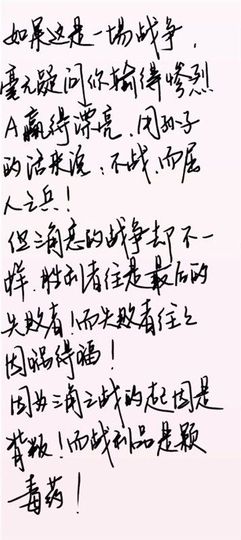 如果这是一场战争,
毫无疑问你输得惨烈
A赢得漂亮,用孙子
的话来说:不战而屈
人之兵!
但三角恋的战争却不一
样,胜利者往往是最后的
失败者!而失败者往往
因祸得福!
因为三角之战的起因是
背叛!而战利品是颗
毒药!